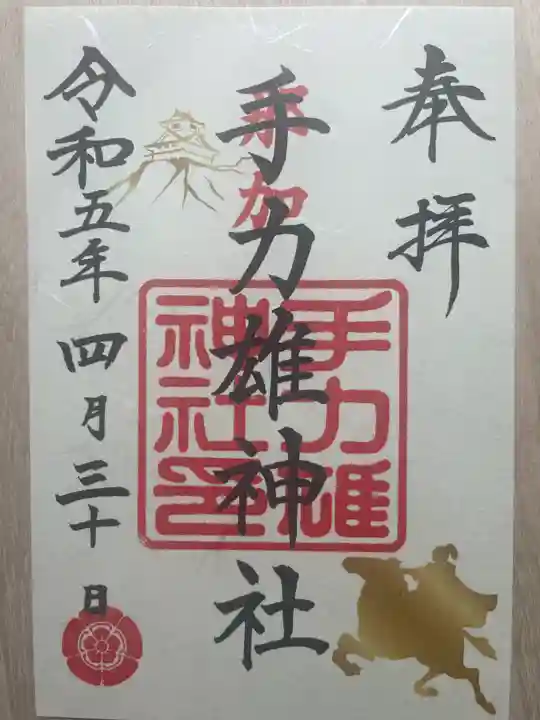 奉拝
手力雄神社
那加
手力雄
神社印
令和五年四月三十日